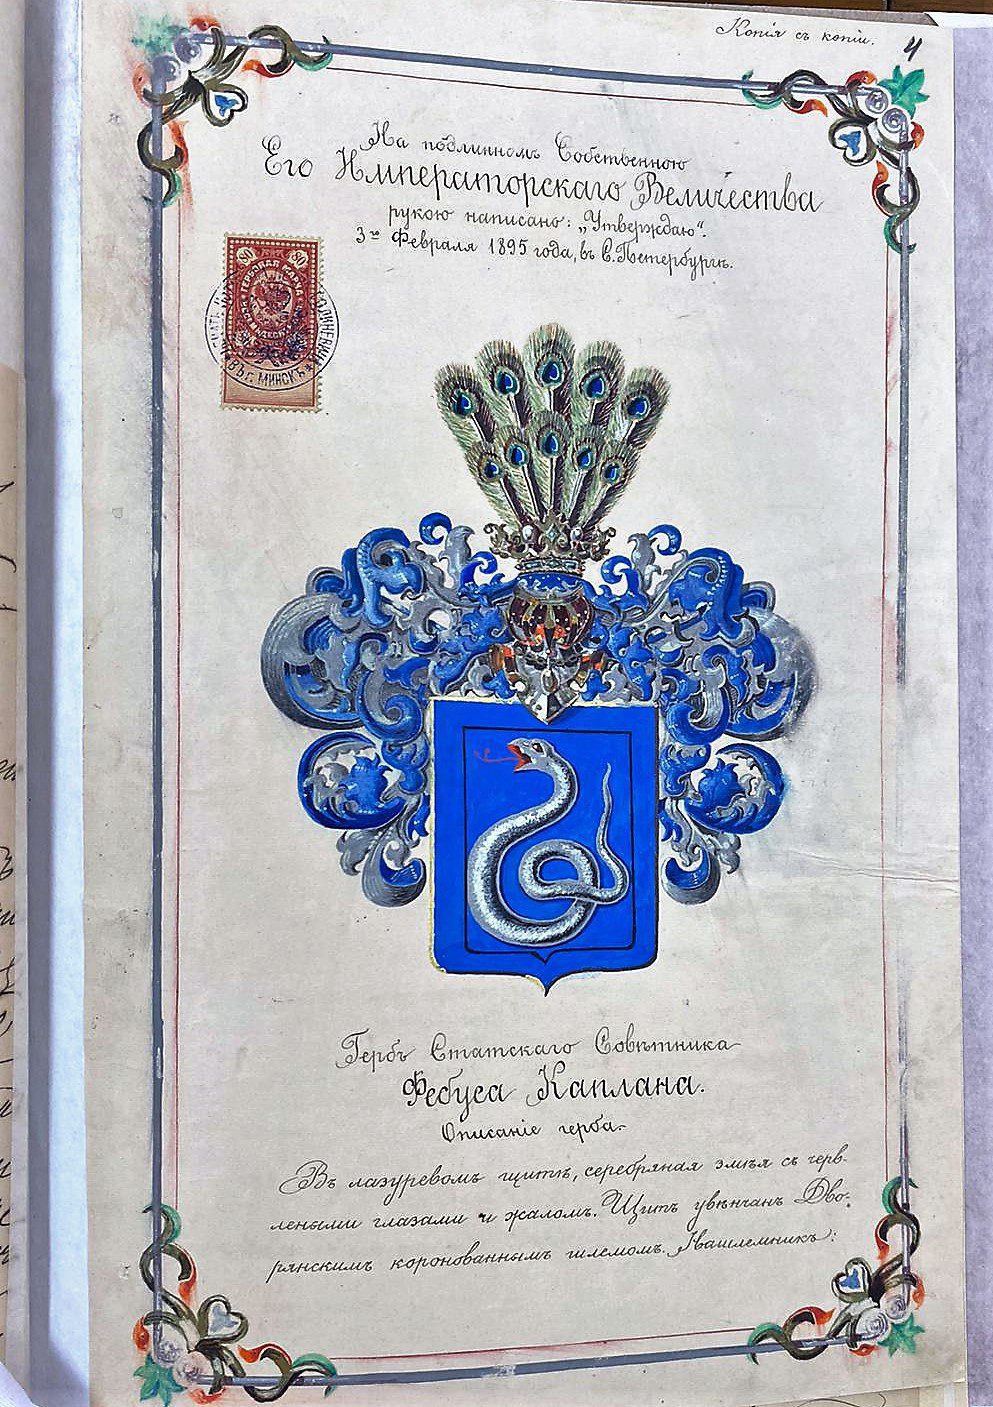 Копія съ копіи.
4
На подлинномъ Собственною
Его Императорскаго Величества
рукою написано: „Утверждаю“.
3го Февраля 1895 года, въ С.Петербургѣ.
80 80
ГЕРБОВАЯ МАРКА
ВЪ Г. МИНСКѢ
Гербъ Статскаго Совѣтника
Фебуса Каплана.
Описаніе герба.
Въ лазуревомъ щитѣ, серебряная змѣя съ черв-
леными глазами и жаломъ. Щитъ увѣнчанъ Дво-
рянскимъ коронованнымъ шлемомъ. Нашлемникъ: